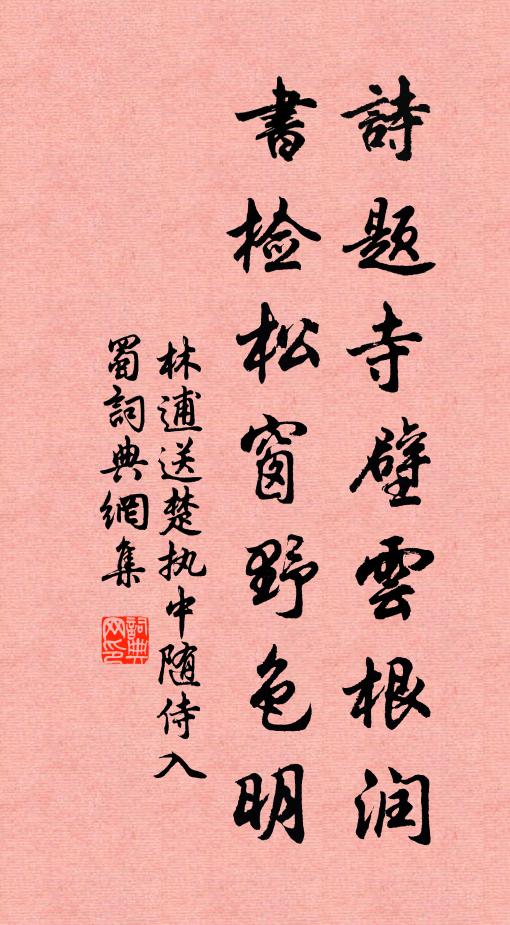 詩题寺壁雲根润
書检松窗野色明
林逋送楚执中随侍入
蜀詞典網集
詞典网印